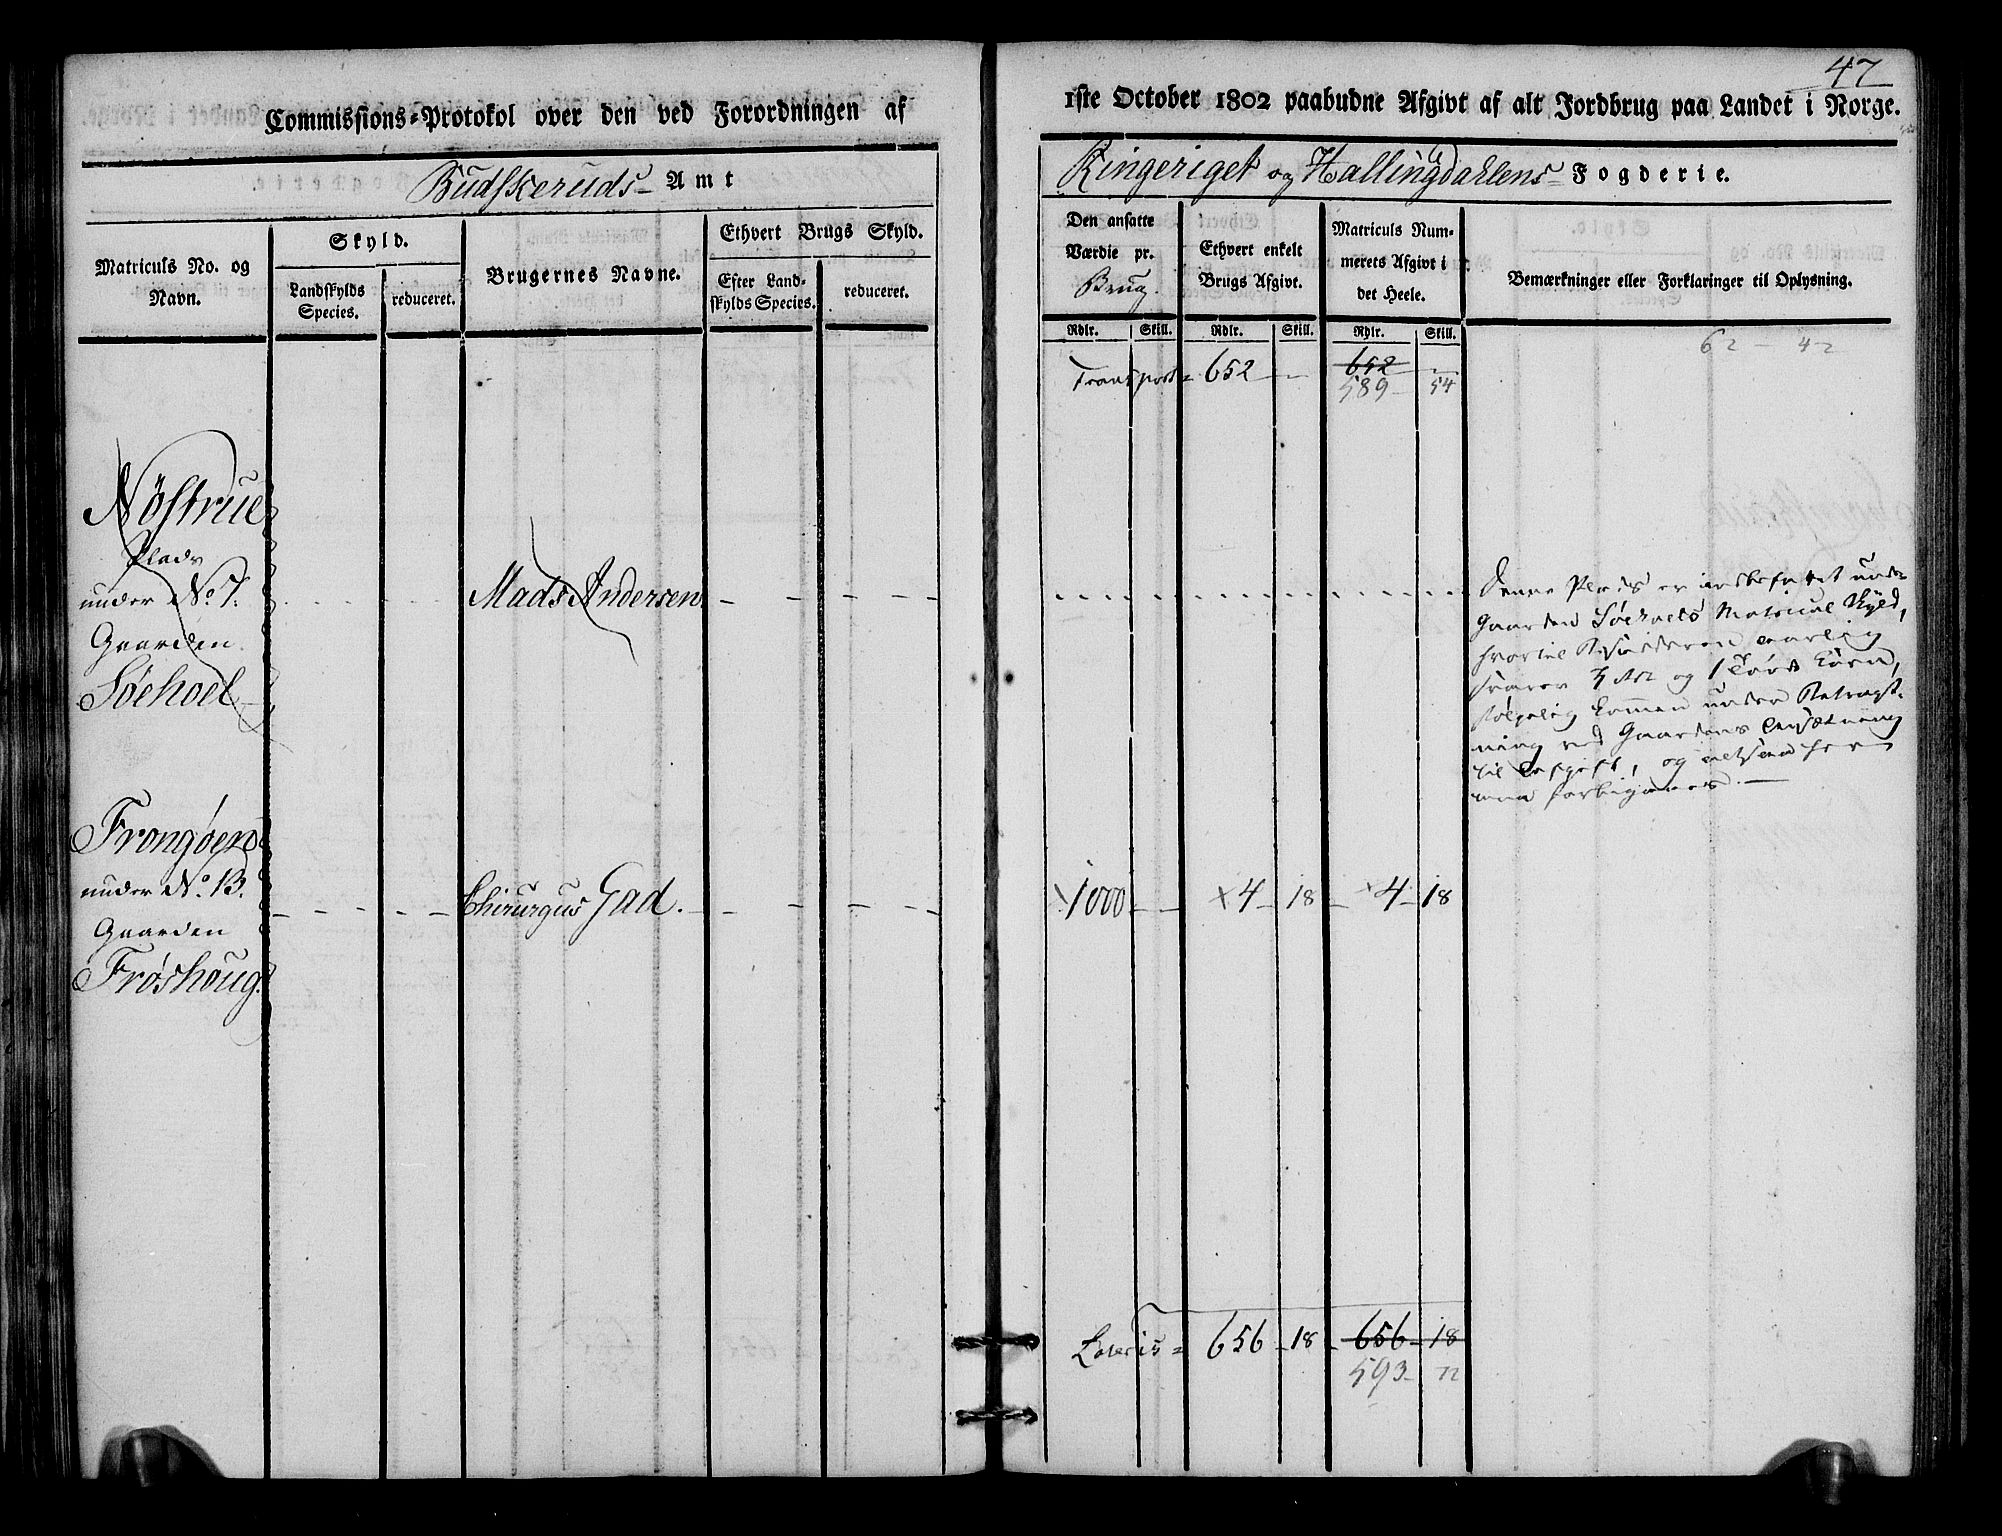 Commissions-Protokol over den ved Forordningen af
Budskeruds Amt
Matriculs No. og
Navn.
Skyld.
Landskylds
Species.
reduceret.
Brugernes Navne.
Ethvert Brugs Skyld.
Efter Land-
skylds Species.
reduceret.
Nøstrue
Plads
under No 7.
Gaarden
Søehoel
Mads Andersen
Frongøen
under No. 13.
Gaarden
Frøshoug.
Chirurgus Gad.
47
1ste October 1802 paabudne Afgivt af alt Jordbrug paa Landet i Norge.
Ringeriget og Hallingdahlens Fogderie.
Den ansatte
Værdie pr.
Brug.
Rdlr. Skill.
Ethvert enkelt
Brugs Afgivt.
Rdlr. Skill.
Matriculs Num-
merets Afgivt i
det Heele.
Rdlr. Skill.
Bemærkninger eller Forklaringer til Oplysning.
62 - 42
Transport = 652 - 652 -
589 - 54
Denne Plads er indbefattet under
Gaarden Søehoels Matricul Skyld,
hvortil Besidderen aarlig
svarer og 1 Korn,
følgelig kommen under Betragt-
ning ved Gaardens Ansætning
til Afgift, og altsaa her
forbigaaes.
1000 - × 4 - 18 - × 4 - 18
Lateris = 656 - 18 - 656 - 18
593 - 72